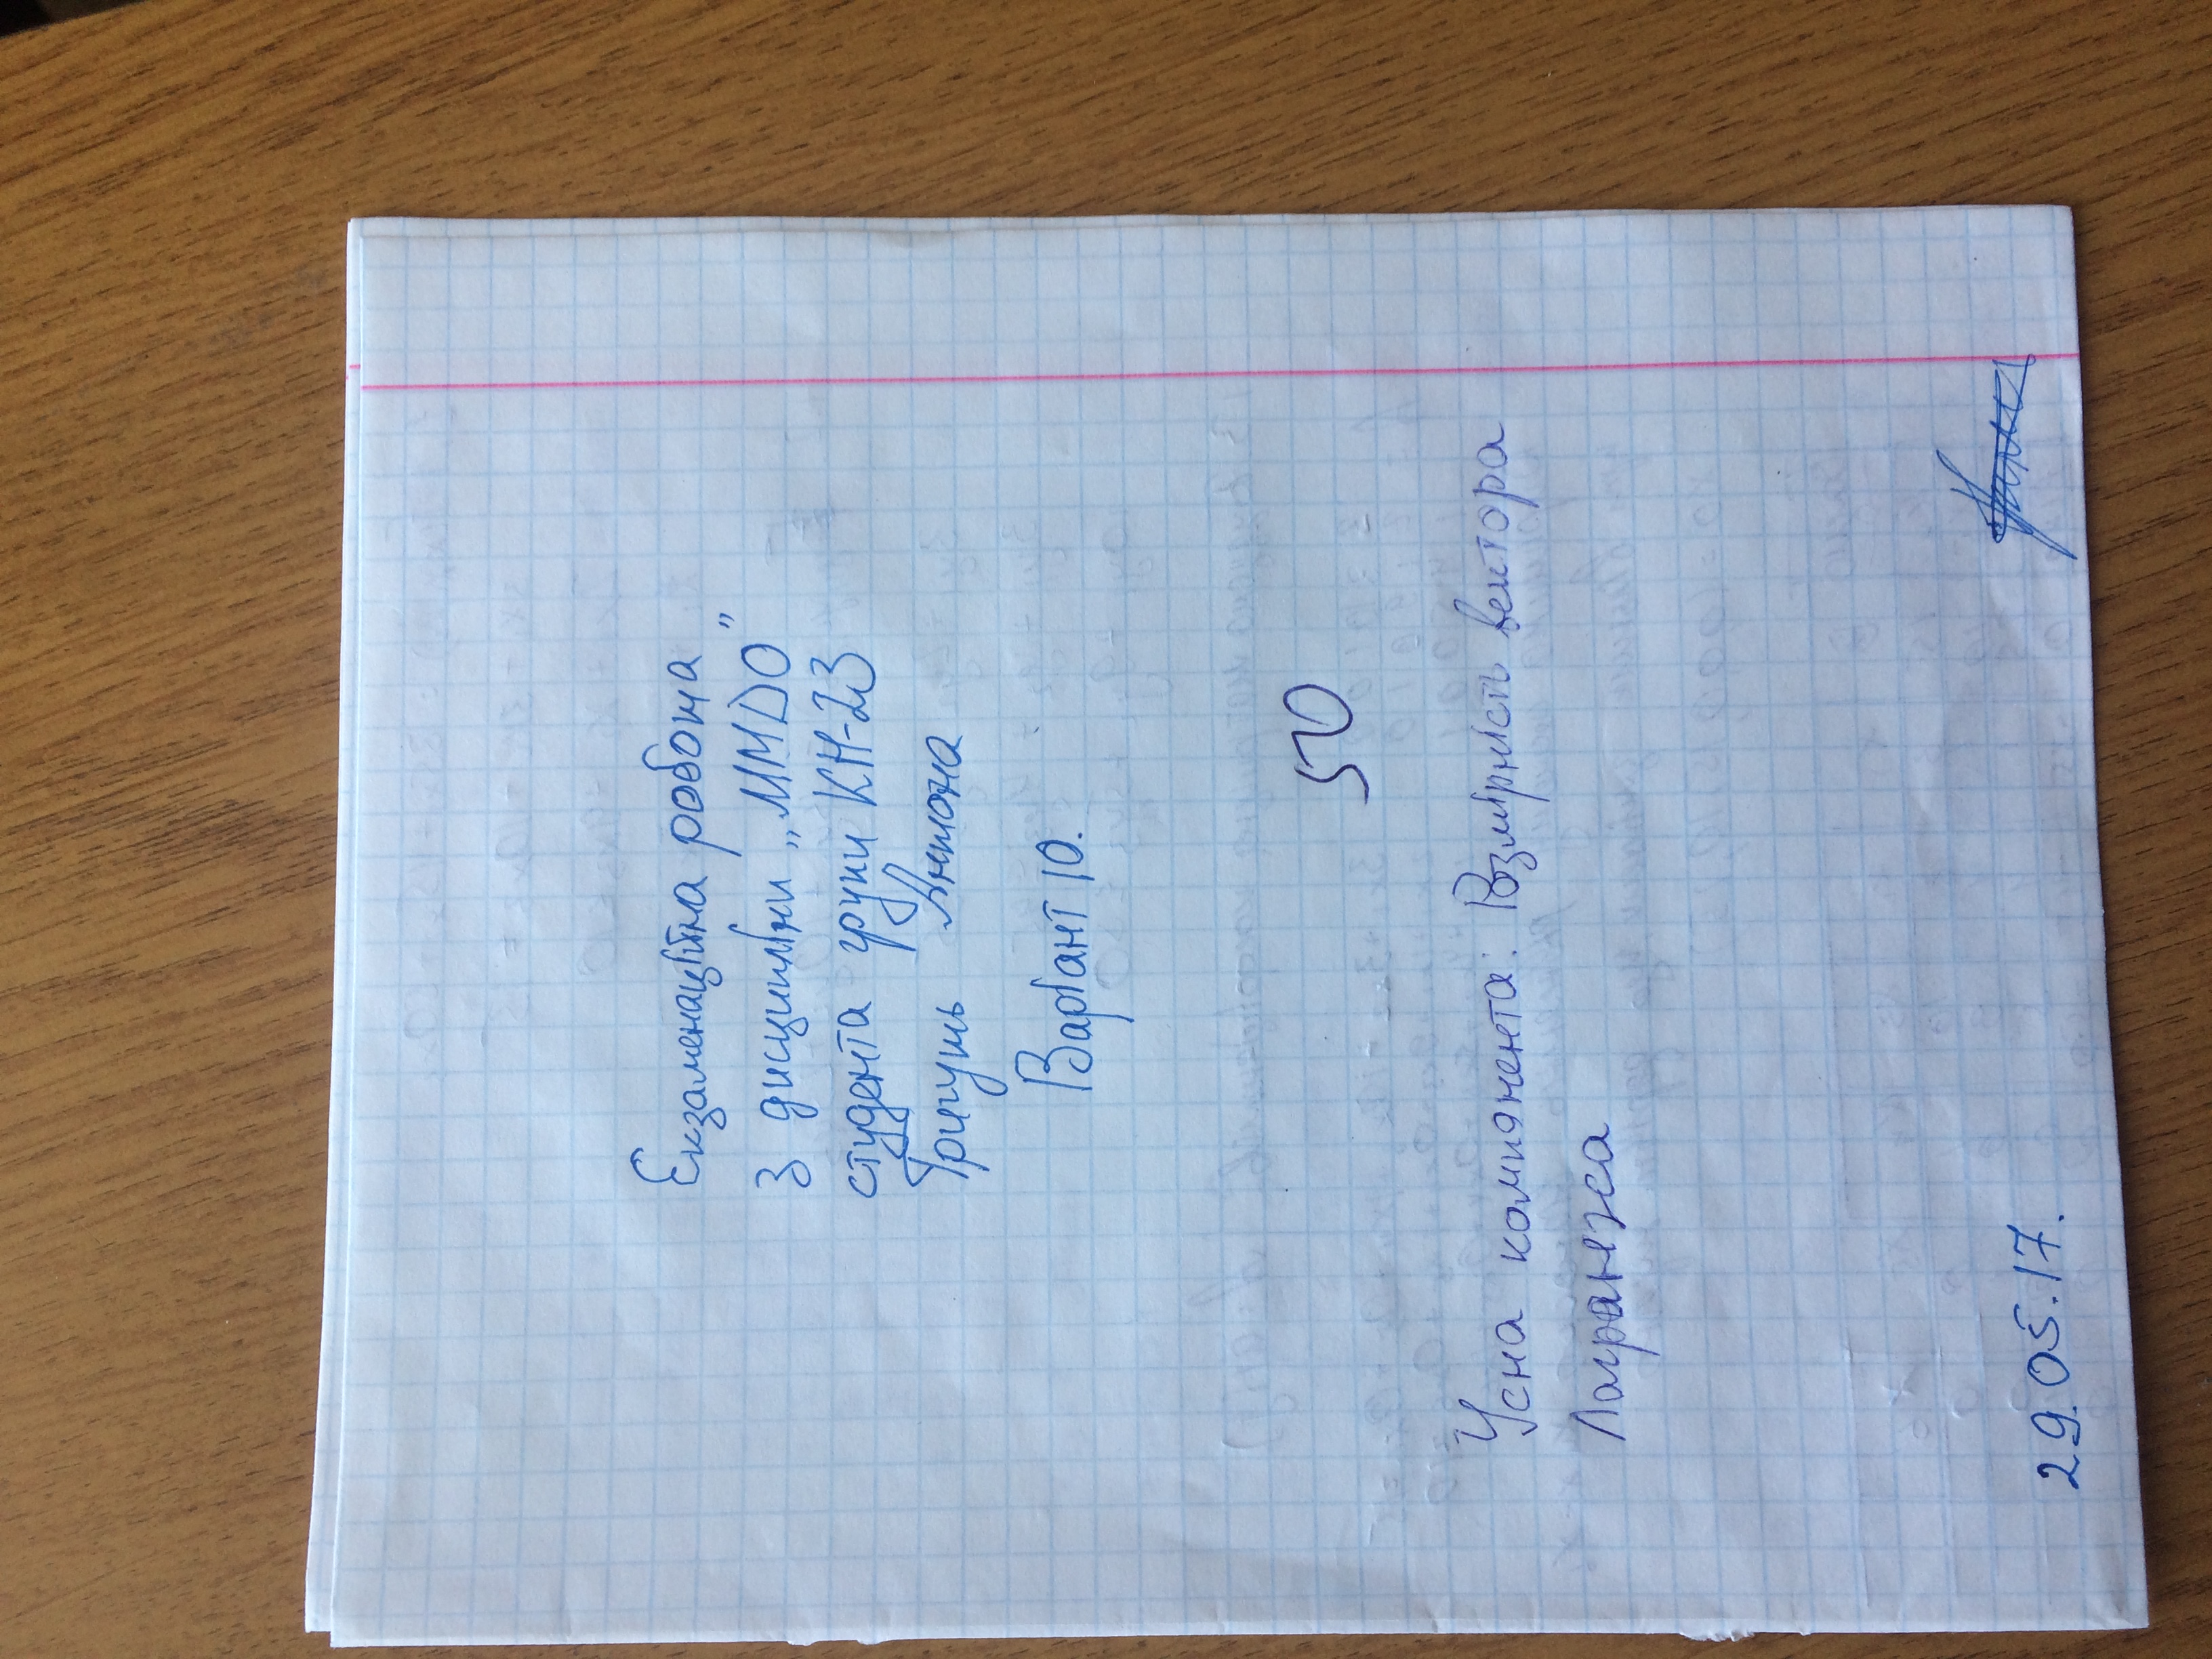 Екзаменаційна робота
з дисципліни „ММДО”
студента групи КН-23
Тригуть Антона
Варіант 10.
50
Усна компонента: Розмірність вектора
Лагранжа
29.05.17.